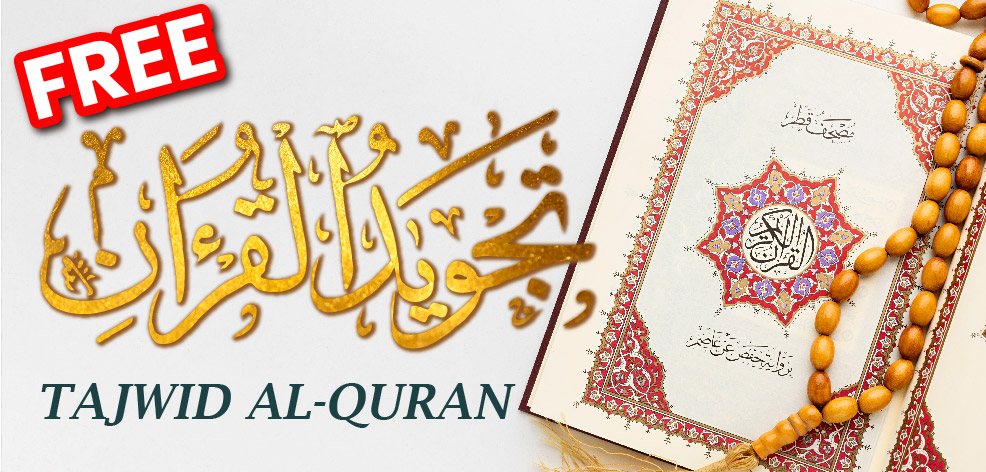 FREE
تجويد القرآن
TAJWID AL-QURAN
مصحف قطر
القرآن الكريم
برواية حفص عن عاصم